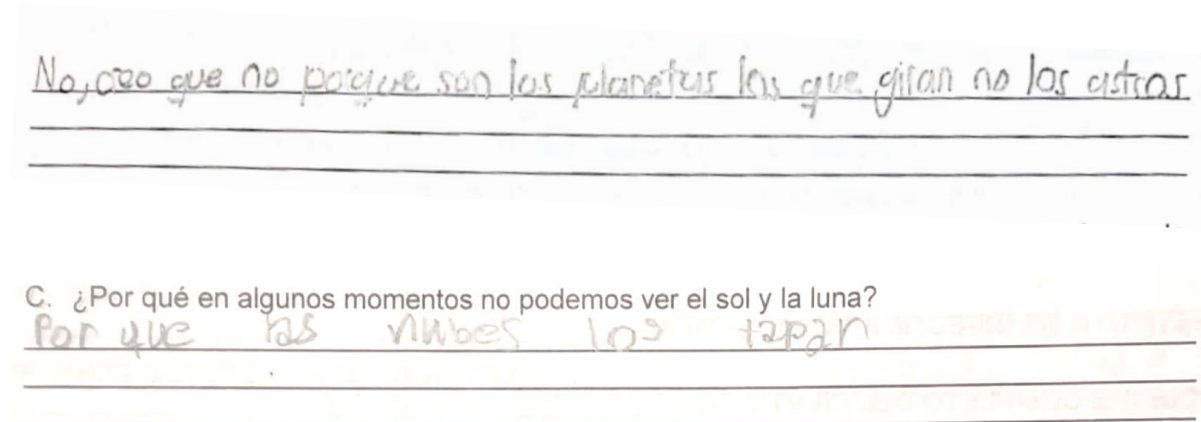 No, creo que no porque son los planetas los que giran no los astros
C. ¿Por qué en algunos momentos no podemos ver el sol y la luna?
Por que las nubes los tapan